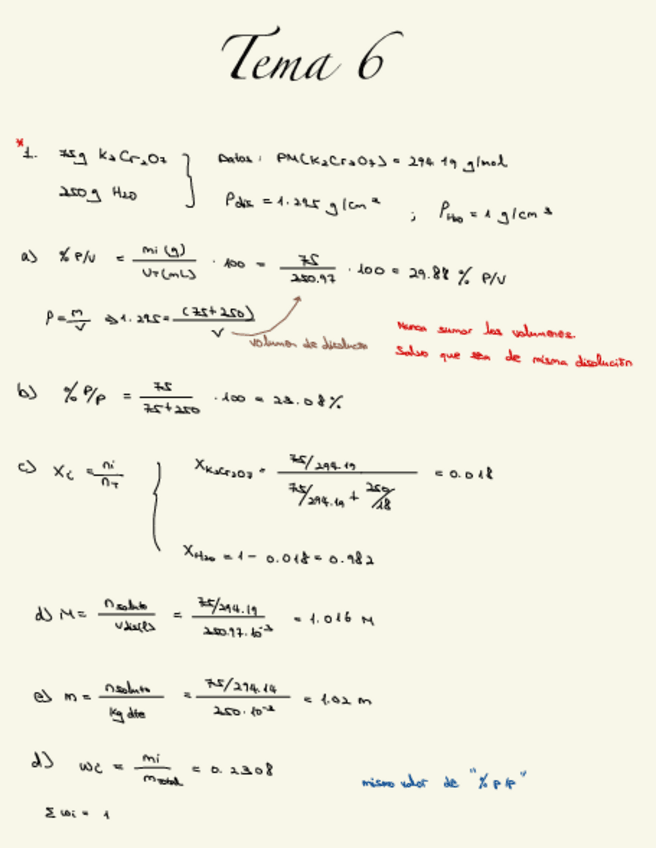 Tema 6
*1. 75g K₂Cr₂O₇ Datos: PM(K₂Cr₂O₇) = 294.19 g/mol
250g H₂O ρdis = 1.295 g/cm³ ; ρH₂O = 1 g/cm³
a) % P/V = mi (g) / VT (mL) · 100 = 75 / 250.97 · 100 = 29.88 % P/V
ρ = m/V ⇒ 1.295 = (75+250) / V volumen de disolucio
Nunca sumar los volumenes.
Salvo que sea de misma disolución
b) % P/P = 75 / 75+250 · 100 = 23.08%
c) Xi = ni / nT XK₂Cr₂O₇ = 75/294.19 / 75/294.19 + 250/18 = 0.018
XH₂O = 1 - 0.018 = 0.982
d) M = nsoluto / Vdis(L) = 75/294.19 / 250.97·10⁻³ = 1.016 M
e) m = nsoluto / kg dte = 75/294.14 / 250·10⁻³ = 1.02 m
d) wi = mi / mtotal = 0.2308
mismo valor de "% P/P"
Σ wi = 1